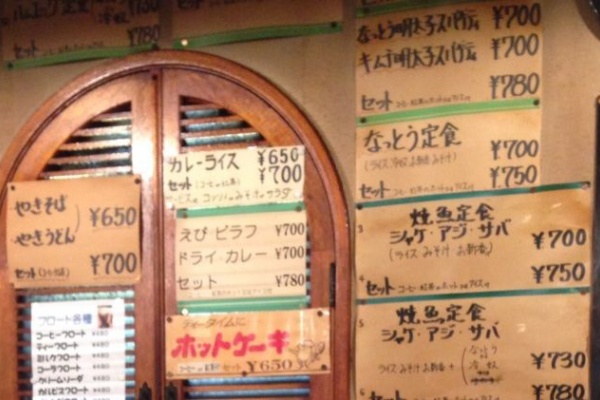 ハムエッグ定食
冷奴
¥780
セット
¥780
やきそば
やきうどん
¥650
セット
¥700
フロート各種
コーヒーフロート ¥480
ティーフロート ¥480
ミルクフロート ¥480
コーラフロート ¥480
クリームソーダ ¥480
カルピスフロート ¥480
カレーライス ¥650
セット ¥700
えび・ピラフ ¥700
ドライ・カレー ¥700
セット ¥780
ティータイムに
ホットケーキ
セット ¥650
¥700
なっとう明太子スパゲティ
キムチ明太子スパゲティ ¥700
セット ¥780
なっとう定食
(ライス 冷奴 お新香 みそ汁) ¥700
セット ¥750
焼魚定食
シャケ・アジ・サバ
(ライス みそ汁 お新香) ¥700
セット ¥750
焼魚定食
シャケ・アジ・サバ
ライス みそ汁 お新香 + (なっとう 冷奴 ¥730
セット ¥780